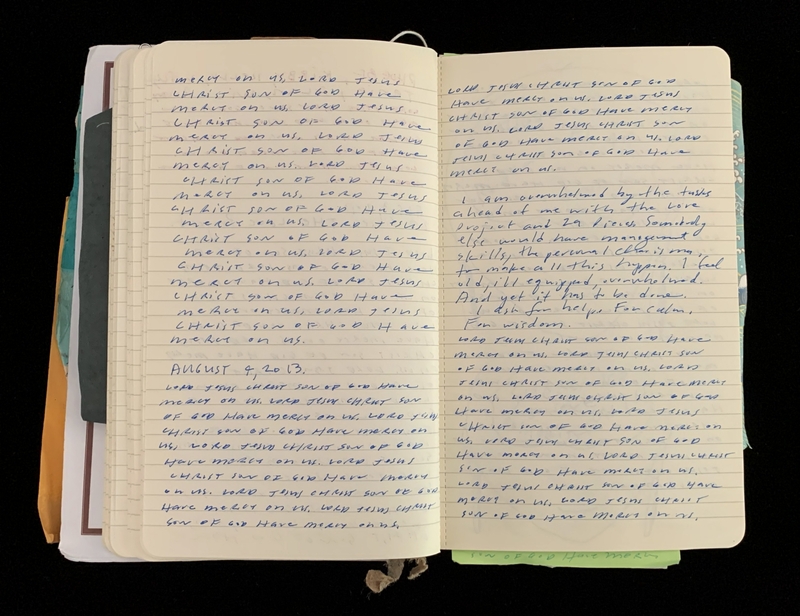 mercy on us, LORD Jesus
CHRIST SON OF GOD Have
mercy on us, LORD Jesus
CHRIST SON OF GOD Have
mercy on us, LORD Jesus
CHRIST SON OF GOD Have
mercy on us, LORD Jesus
CHRIST SON OF GOD Have
mercy on us, LORD Jesus
CHRIST SON OF GOD Have
mercy on us, LORD Jesus
CHRIST SON OF GOD Have
mercy on us, LORD Jesus
CHRIST SON OF GOD Have
mercy on us, LORD Jesus
CHRIST SON OF GOD Have
mercy on us, LORD Jesus
CHRIST SON OF GOD Have
mercy on us.
AUGUST 4, 2013.
LORD JESUS CHRIST SON OF GOD HAVE
mercy on us. LORD JESUS CHRIST SON
OF GOD Have mercy on us. LORD Jesus
CHRIST SON OF GOD Have mercy on
us, LORD JESUS CHRIST SON OF GOD
Have mercy on us. LORD JESUS
CHRIST SON OF GOD Have mercy
on us. LORD JESUS CHRIST SON OF GOD
Have mercy on us. LORD JESUS CHRIST
SON OF GOD Have mercy on us.
LORD JESUS CHRIST SON OF GOD
Have mercy on us. LORD JESUS
CHRIST SON OF GOD Have mercy
on us. LORD JESUS CHRIST SON
OF GOD Have mercy on us. LORD
JESUS CHRIST SON OF GOD Have
mercy on us.
I am overwhelmed by the tasks
ahead of me with the Love
Project and 29 Pieces. Somebody
else would have management
skills, the personal charisma,
to make all this happen. I feel
old, ill equipped, overwhelmed.
And yet it has to be done.
I ask for help. For calm.
For wisdom.
LORD JESUS CHRIST SON OF GOD Have
mercy on us. LORD JESUS CHRIST SON
OF GOD Have mercy on us. LORD
JESUS CHRIST SON OF GOD Have mercy
on us. LORD JESUS CHRIST SON OF GOD
Have mercy on us. LORD JESUS
CHRIST SON OF GOD Have mercy on
us. LORD JESUS CHRIST SON OF GOD
Have mercy on us LORD JESUS CHRIST
SON OF GOD Have mercy on us.
LORD JESUS CHRIST SON OF GOD Have
mercy on us. LORD JESUS CHRIST
SON OF GOD Have mercy on us.
SON OF GOD Have mercy